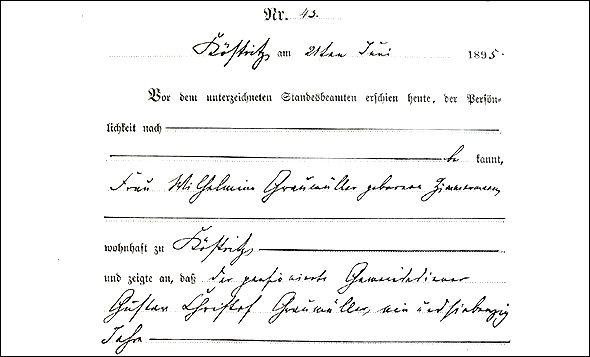 Nr. 43.
Köstritz am 21ten Juni 1895.
Vor dem unterzeichneten Standesbeamten erschien heute, der Persön-
lichkeit nach
be kannt,
Frau Wilhelmine Graumüller geborene Zimmermann,
wohnhaft zu Köstritz
und zeigte an, daß der pensionierte Gemeindediener
Gustav Christof Graumüller, ein und siebenzig
Jahre